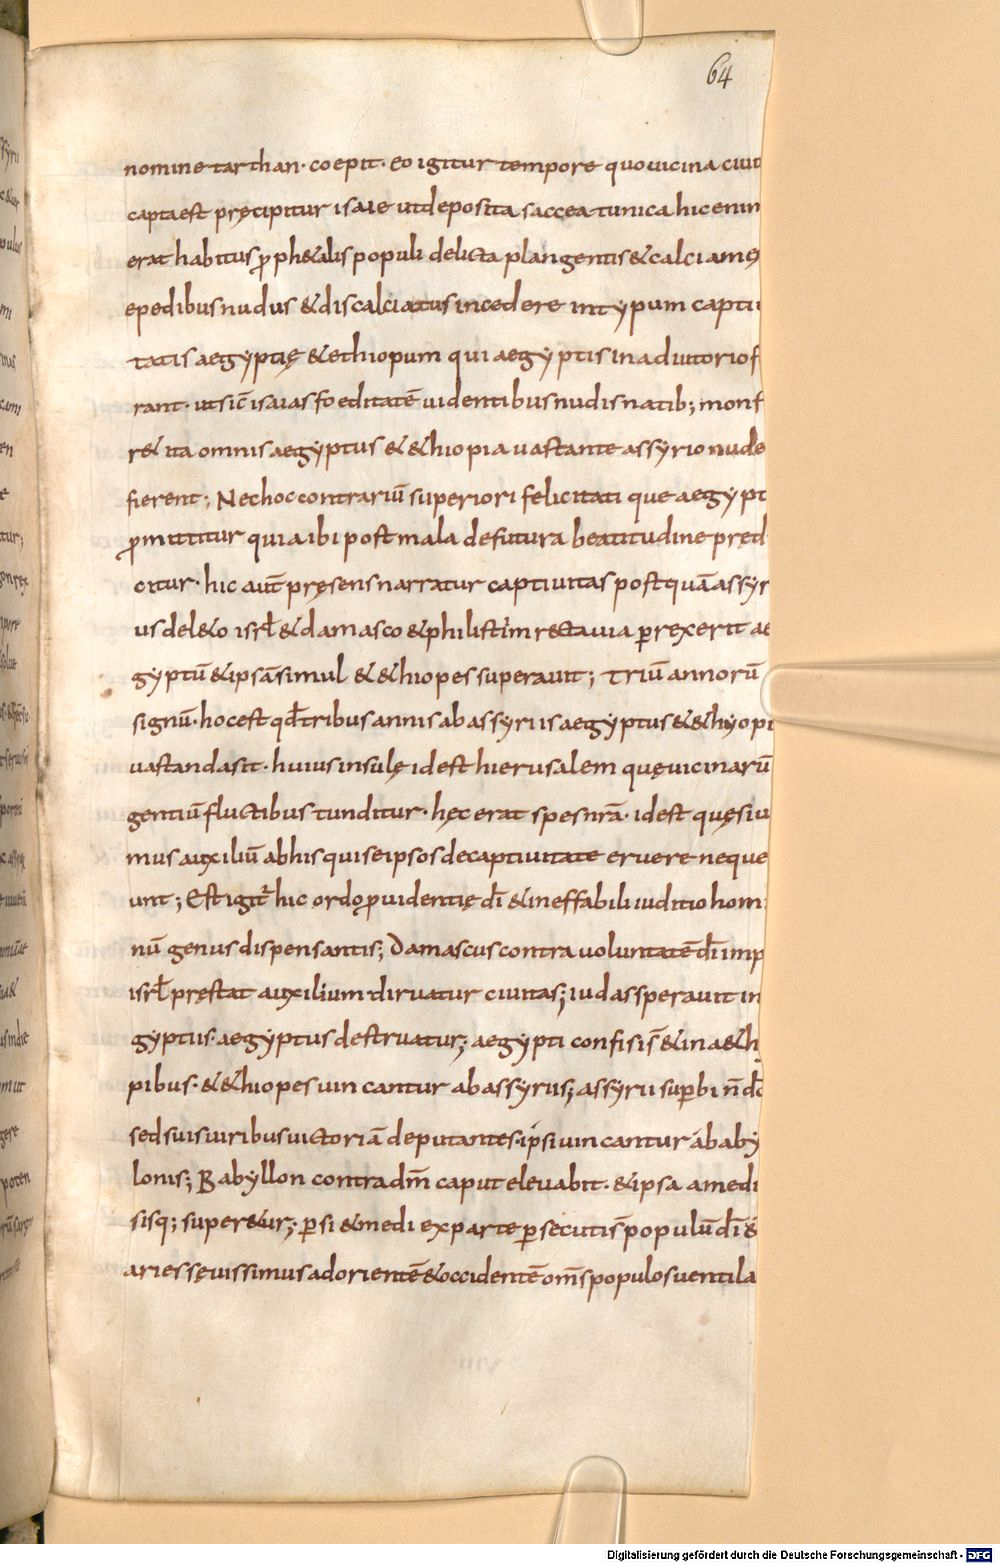 64
nomine tarthan· coepit· eo igitur tempore quo uicina ciuit
capta est pręcipitur isaie ut deposita saccea tunica hic enim
erat habitus ꝓph&alis populi delicta plangentis & calciam̄
e pedibus nudus & discalciatus incedere in typum captiu
tatis aegyptię & ethiopum qui aegyptis in adiutorio f
rant· ut sic̄ isaias foeditatē uidentibus nudis natib; monſ
r& ita omnis aegyptus & &hiopia uastante assyrio nude
fierent; Nec hoc contrariū superiori felicitati que aegypt
ꝓmittitur quia ibi post mala de futura beatitudine pręd
citur· hic aut̄ pręsens narratur captiuitas postquā assyr
us del&o isrł & damasco & philistim recta uia ꝑrexerit ae
gyptū & ipsā simul & &hiopes superauit; Triū annorū
signū· hoc est qđ tribus annis ab assyriis aegyptus & &hyopi
uastanda sit· huius insulę id est hierusalem quę uicinarū
gentiū fluctibus tunditur· hęc erat spes nr̄a· id est quęsiu
mus auxiliū ab his qui se ipsos de captiuitate eruere neque
unt; Est igit̄ hic ordo ꝓuidentię dī & ineffabili iuditio hom
nū genus dispensantis; Damascus contra uoluntatē dī imp
isrł pręstat auxilium· diruatur ciuitas; iudas sperauit in
gyptus· aegyptus destruatur; aegypti confisi s̄ & in a&h
pibus· & &hiopes uincantur ab assyriis; assyrii suꝑbi n̄ dō
sed suis uiribus uictoriā deputantes· ipsi uincantur á baby
lonis; Babyllon contra dm̄ caput eleuabit· & ipsa a medi
sisq; super&ur; ꝑsi & medi ex parte ꝑsecuti s̄ populū dī &
aries sęuissimus ad orientē & occidentē om̄s populos uentila
Digitalisierung gefördert durch die Deutsche Forschungsgemeinschaft - DFG